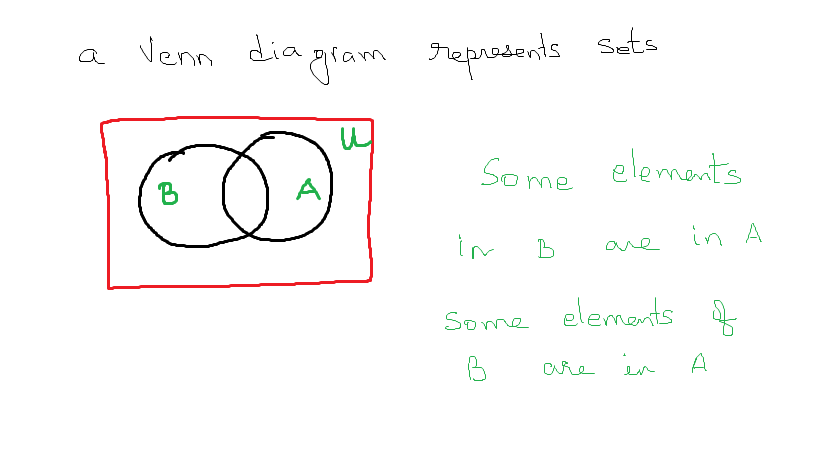 a Venn diagram represents sets
U
B A
Some elements
in B are in A
Some elements of
B are in A